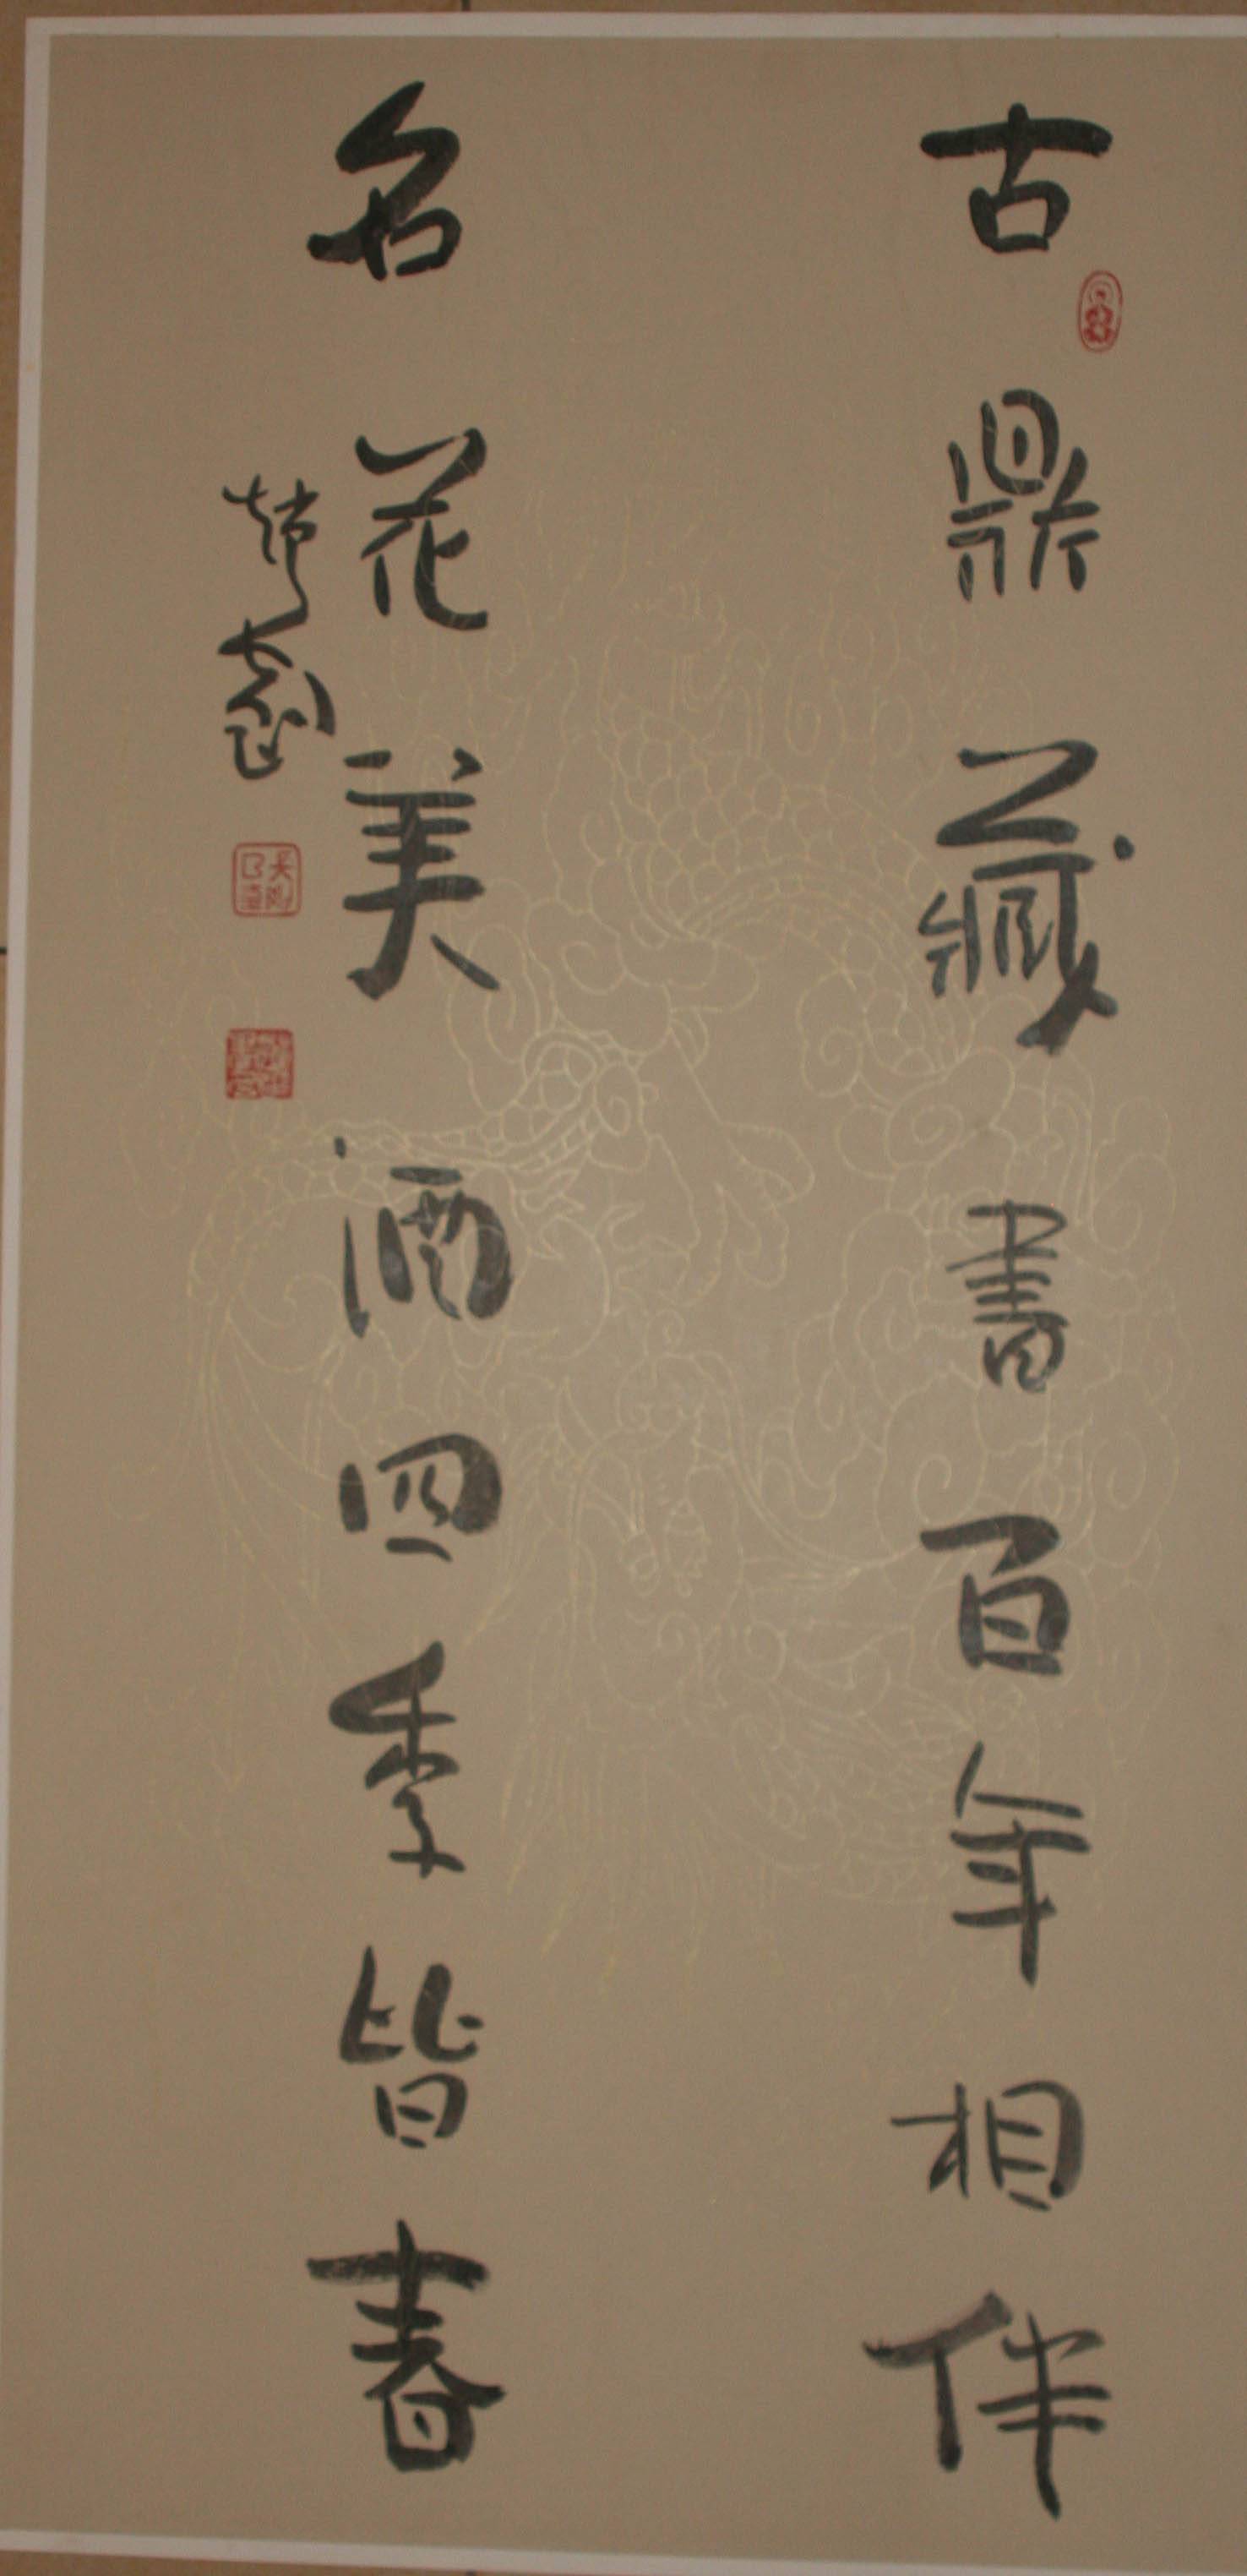 古鼎藏書百年相伴
名花美酒四季皆春